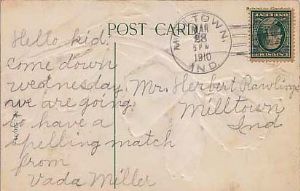 POST CARD
MILLTOWN,
MAR
23
5 PM
1910
IND.
Hello kid.
come down
wednesday
we are going
to have a
spelling match
from
Vada Miller
Mr. Herbert Rawlings
Milltown
Ind